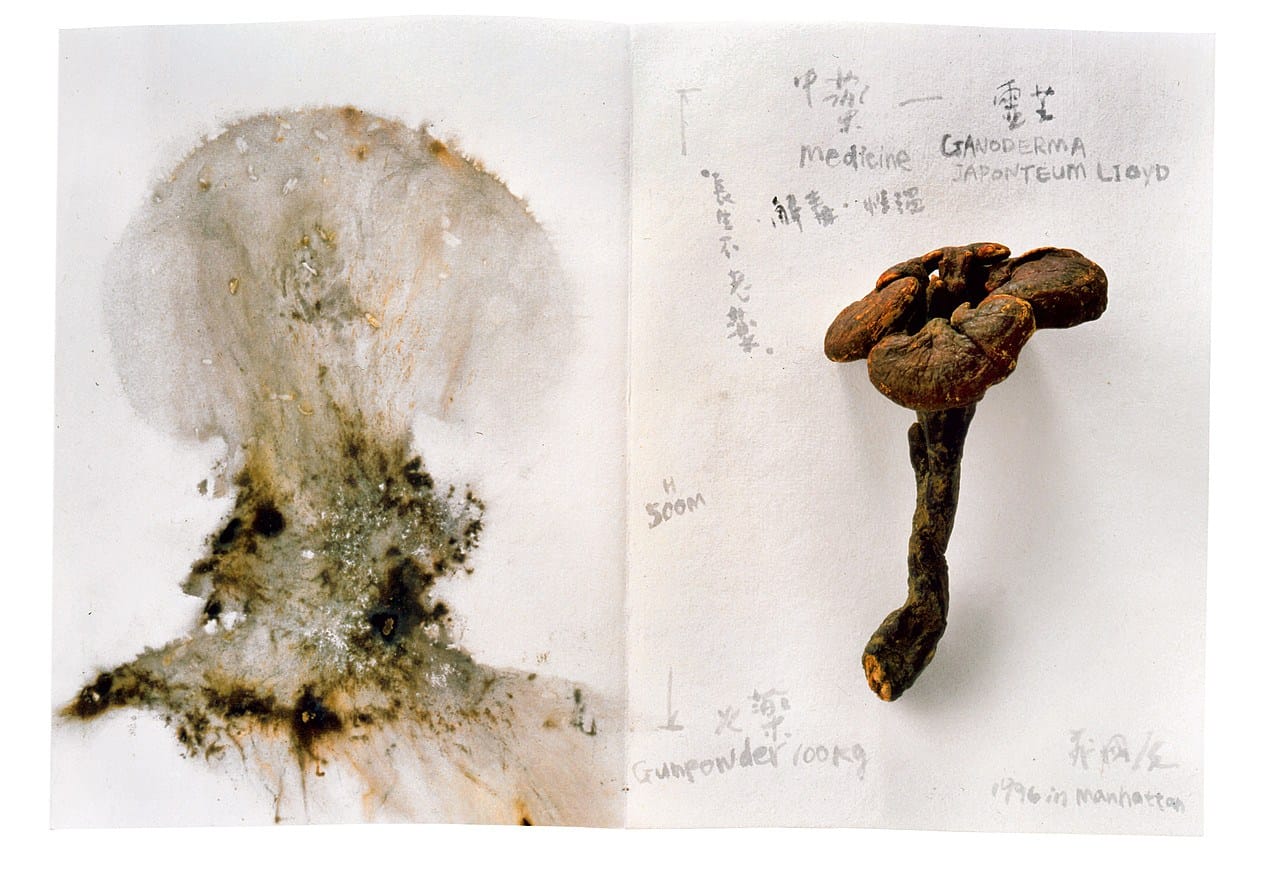 中藥 — 靈芝
medicine GANODERMA
JAPONTEUM LIOYD
解毒·性溫
長生不老藥.
H
500M
火藥
Gunpowder 100kg
蔡國強
1996 in manhattan